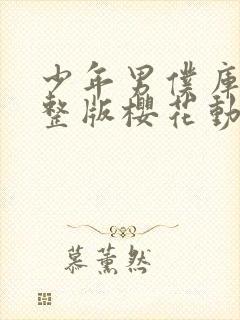 少年男僕庫
整版櫻花動
慕薰然